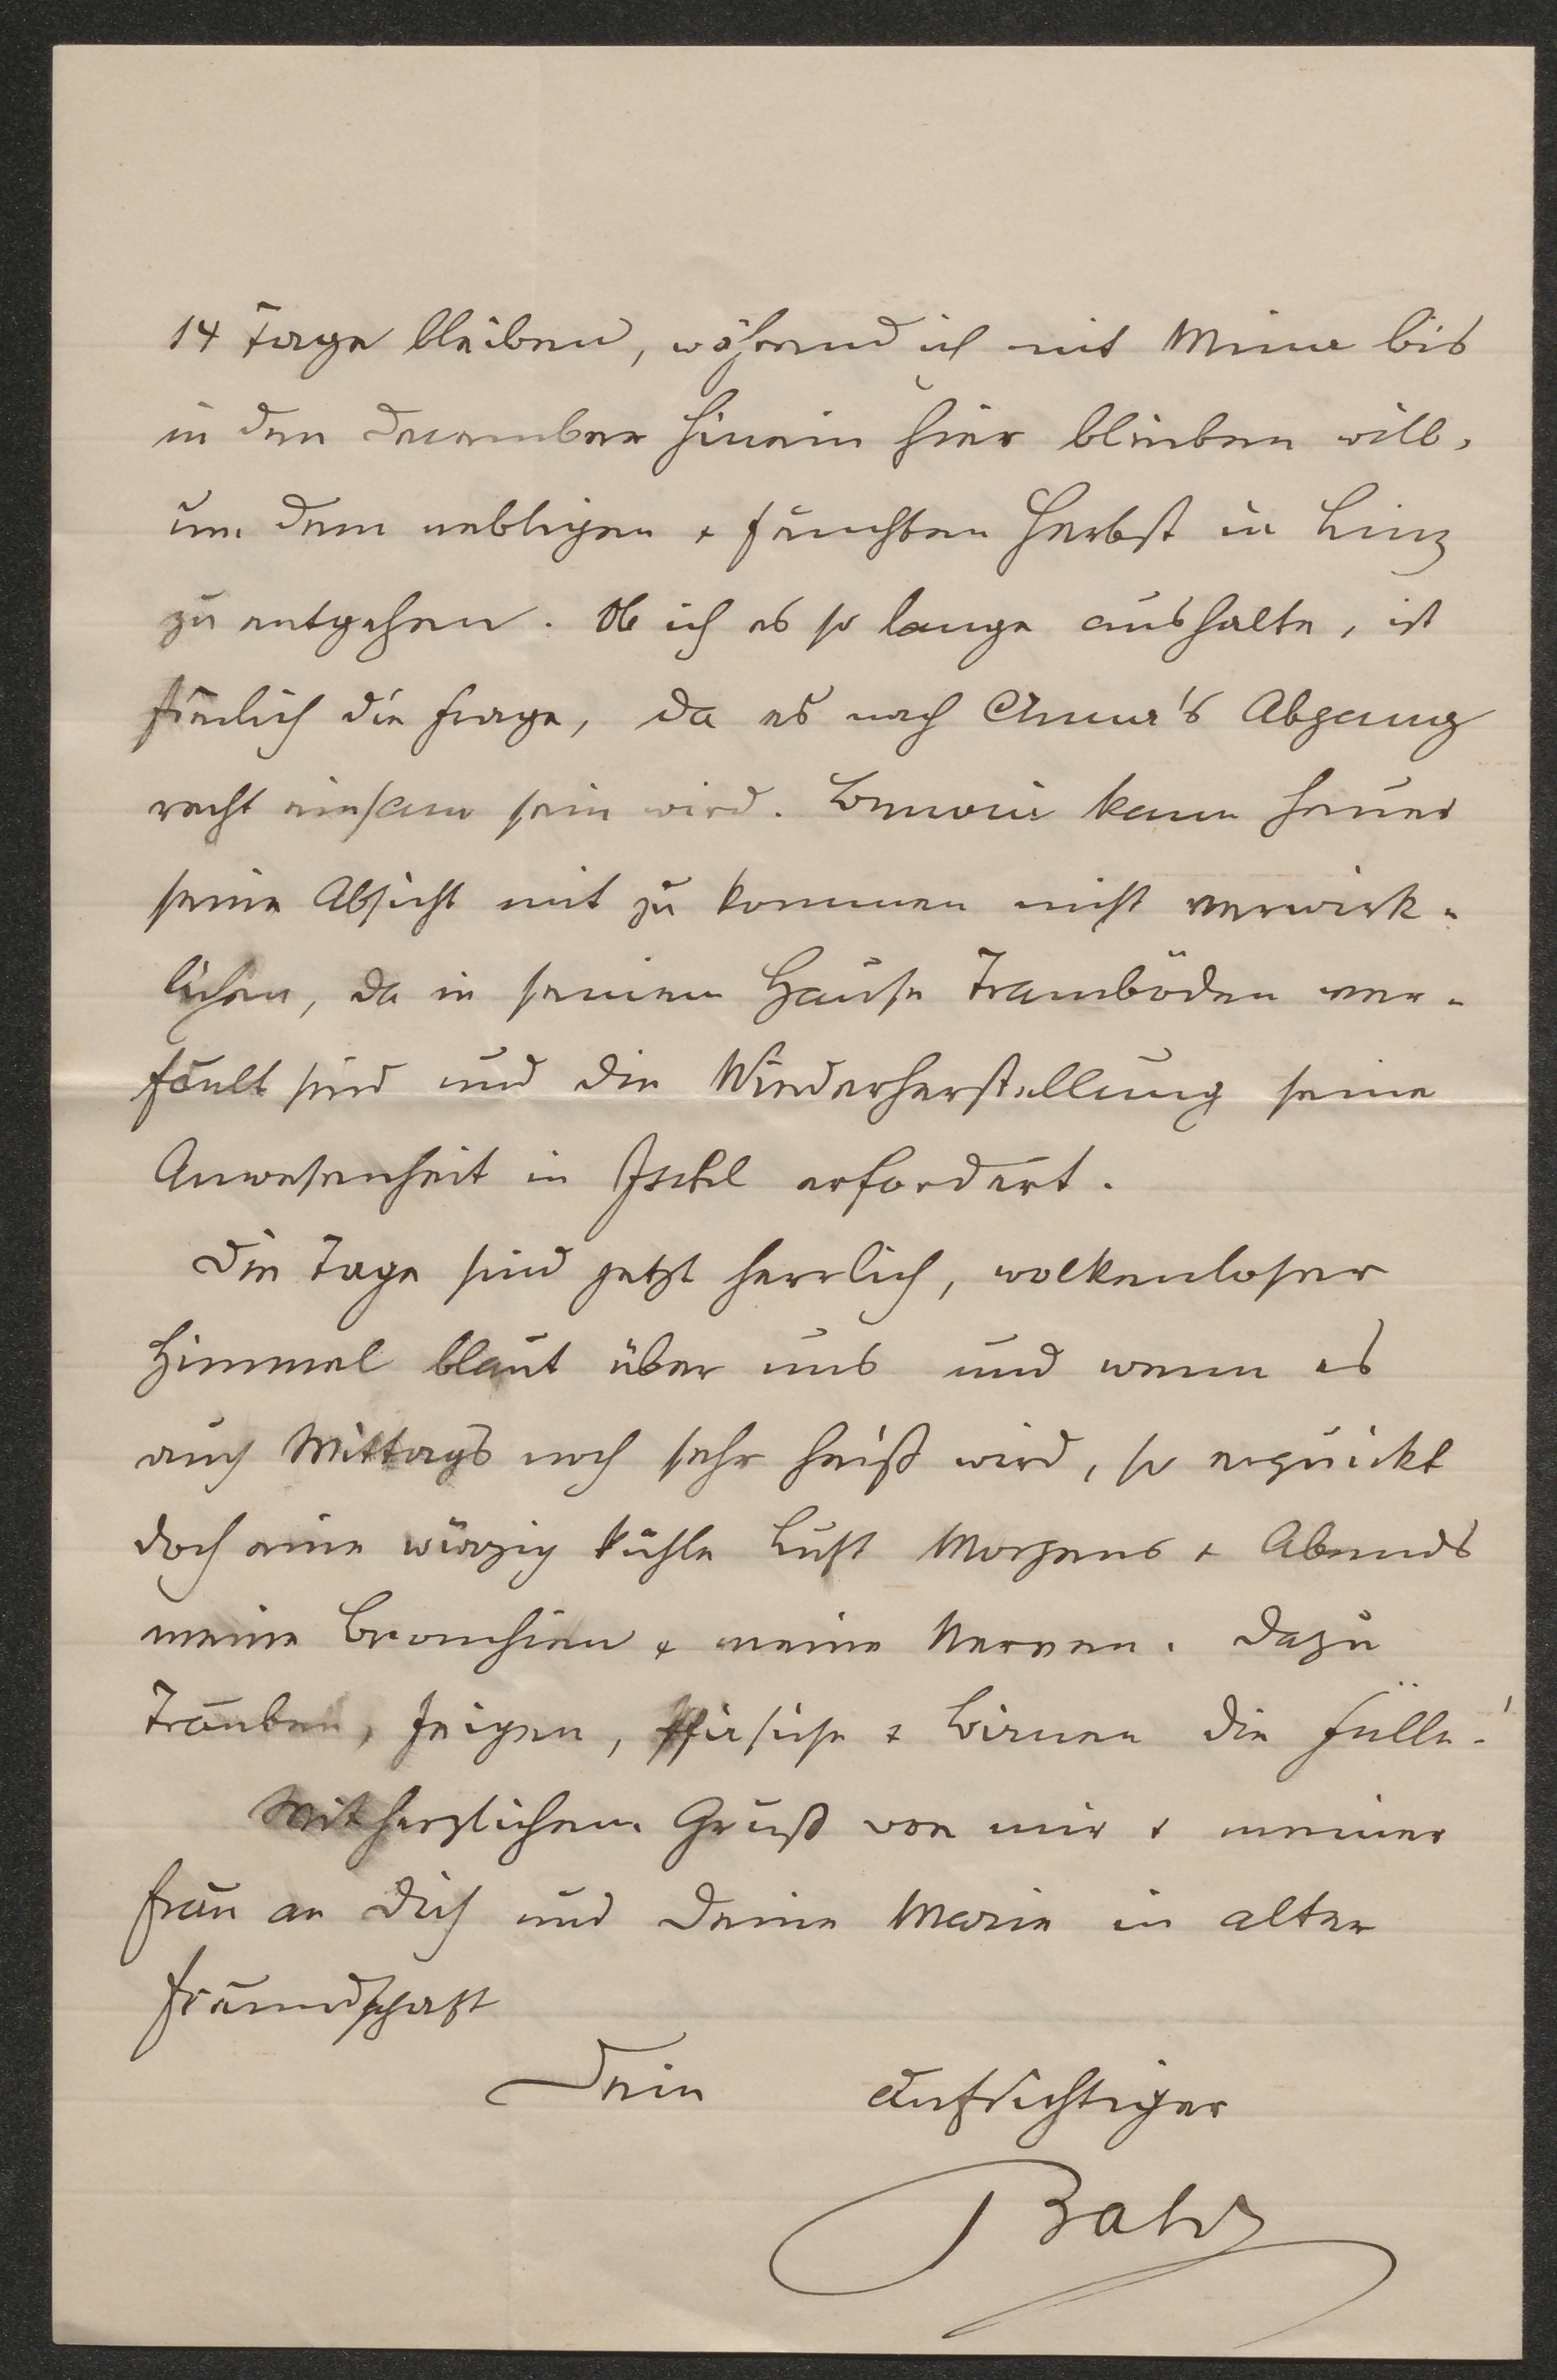 14 Tage bleiben, während ich mit Mina bis
in den December hinein hier bleiben will,
um dem nebligen + feuchten Herbst in Linz
zu entgehen. Ob ich es so lange aushalte, ist
freilich die Frage, da es nach Anna's Abgang
recht einsam sein wird. kann heuer
seine Absicht mit zu kommen nicht verwirk-
lichen, da in seinem Hause Tramböden ver-
fault sind und die Wiederherstellung seine
Anwesenheit in Ischl erfordert.
Die Tage sind jetzt herrlich, wolkenloser
Himmel blaut über uns und wenn es
auch Mittags noch sehr heiß wird, so erquickt
doch eine würzig kühle Luft Morgens + Abends
meine Bronchien + meine Nerven. Dazu
Trauben, Feigen, Pfirsiche + Birnen die Fülle!
Mit herzlichem Gruß von mir + meiner
Frau an Dich und Deine Marie in alter
Freundschaft
Dein aufrichtiger
Bahr